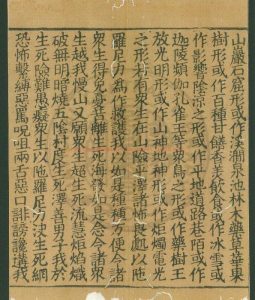 山巖石窟形或作決澗泉池林木藥草華菓
樹形或作百種甘饍香美飲食或作氷雪或
作影響陰涼之形或作平地道路巷陌或作
迦陵頻伽孔雀王等眾鳥之形或作藥樹王
放光明形或作山神地神形或作炬燭電光
之形若有眾生在山險中諸怖畏處以陁
羅尼力為作救護我以如是種種方便令諸
眾生得免憂苦離生死海發如是念令諸眾
生越我慢山又願眾生超生死流慧炬焰熾
破無明暗燒五陰村度生死澤善男子我於
生死險難愚癡眾生以陁羅尼力決生死網
恐怖繫縛惡罵呪咀兩舌惡口誹謗讒搆我